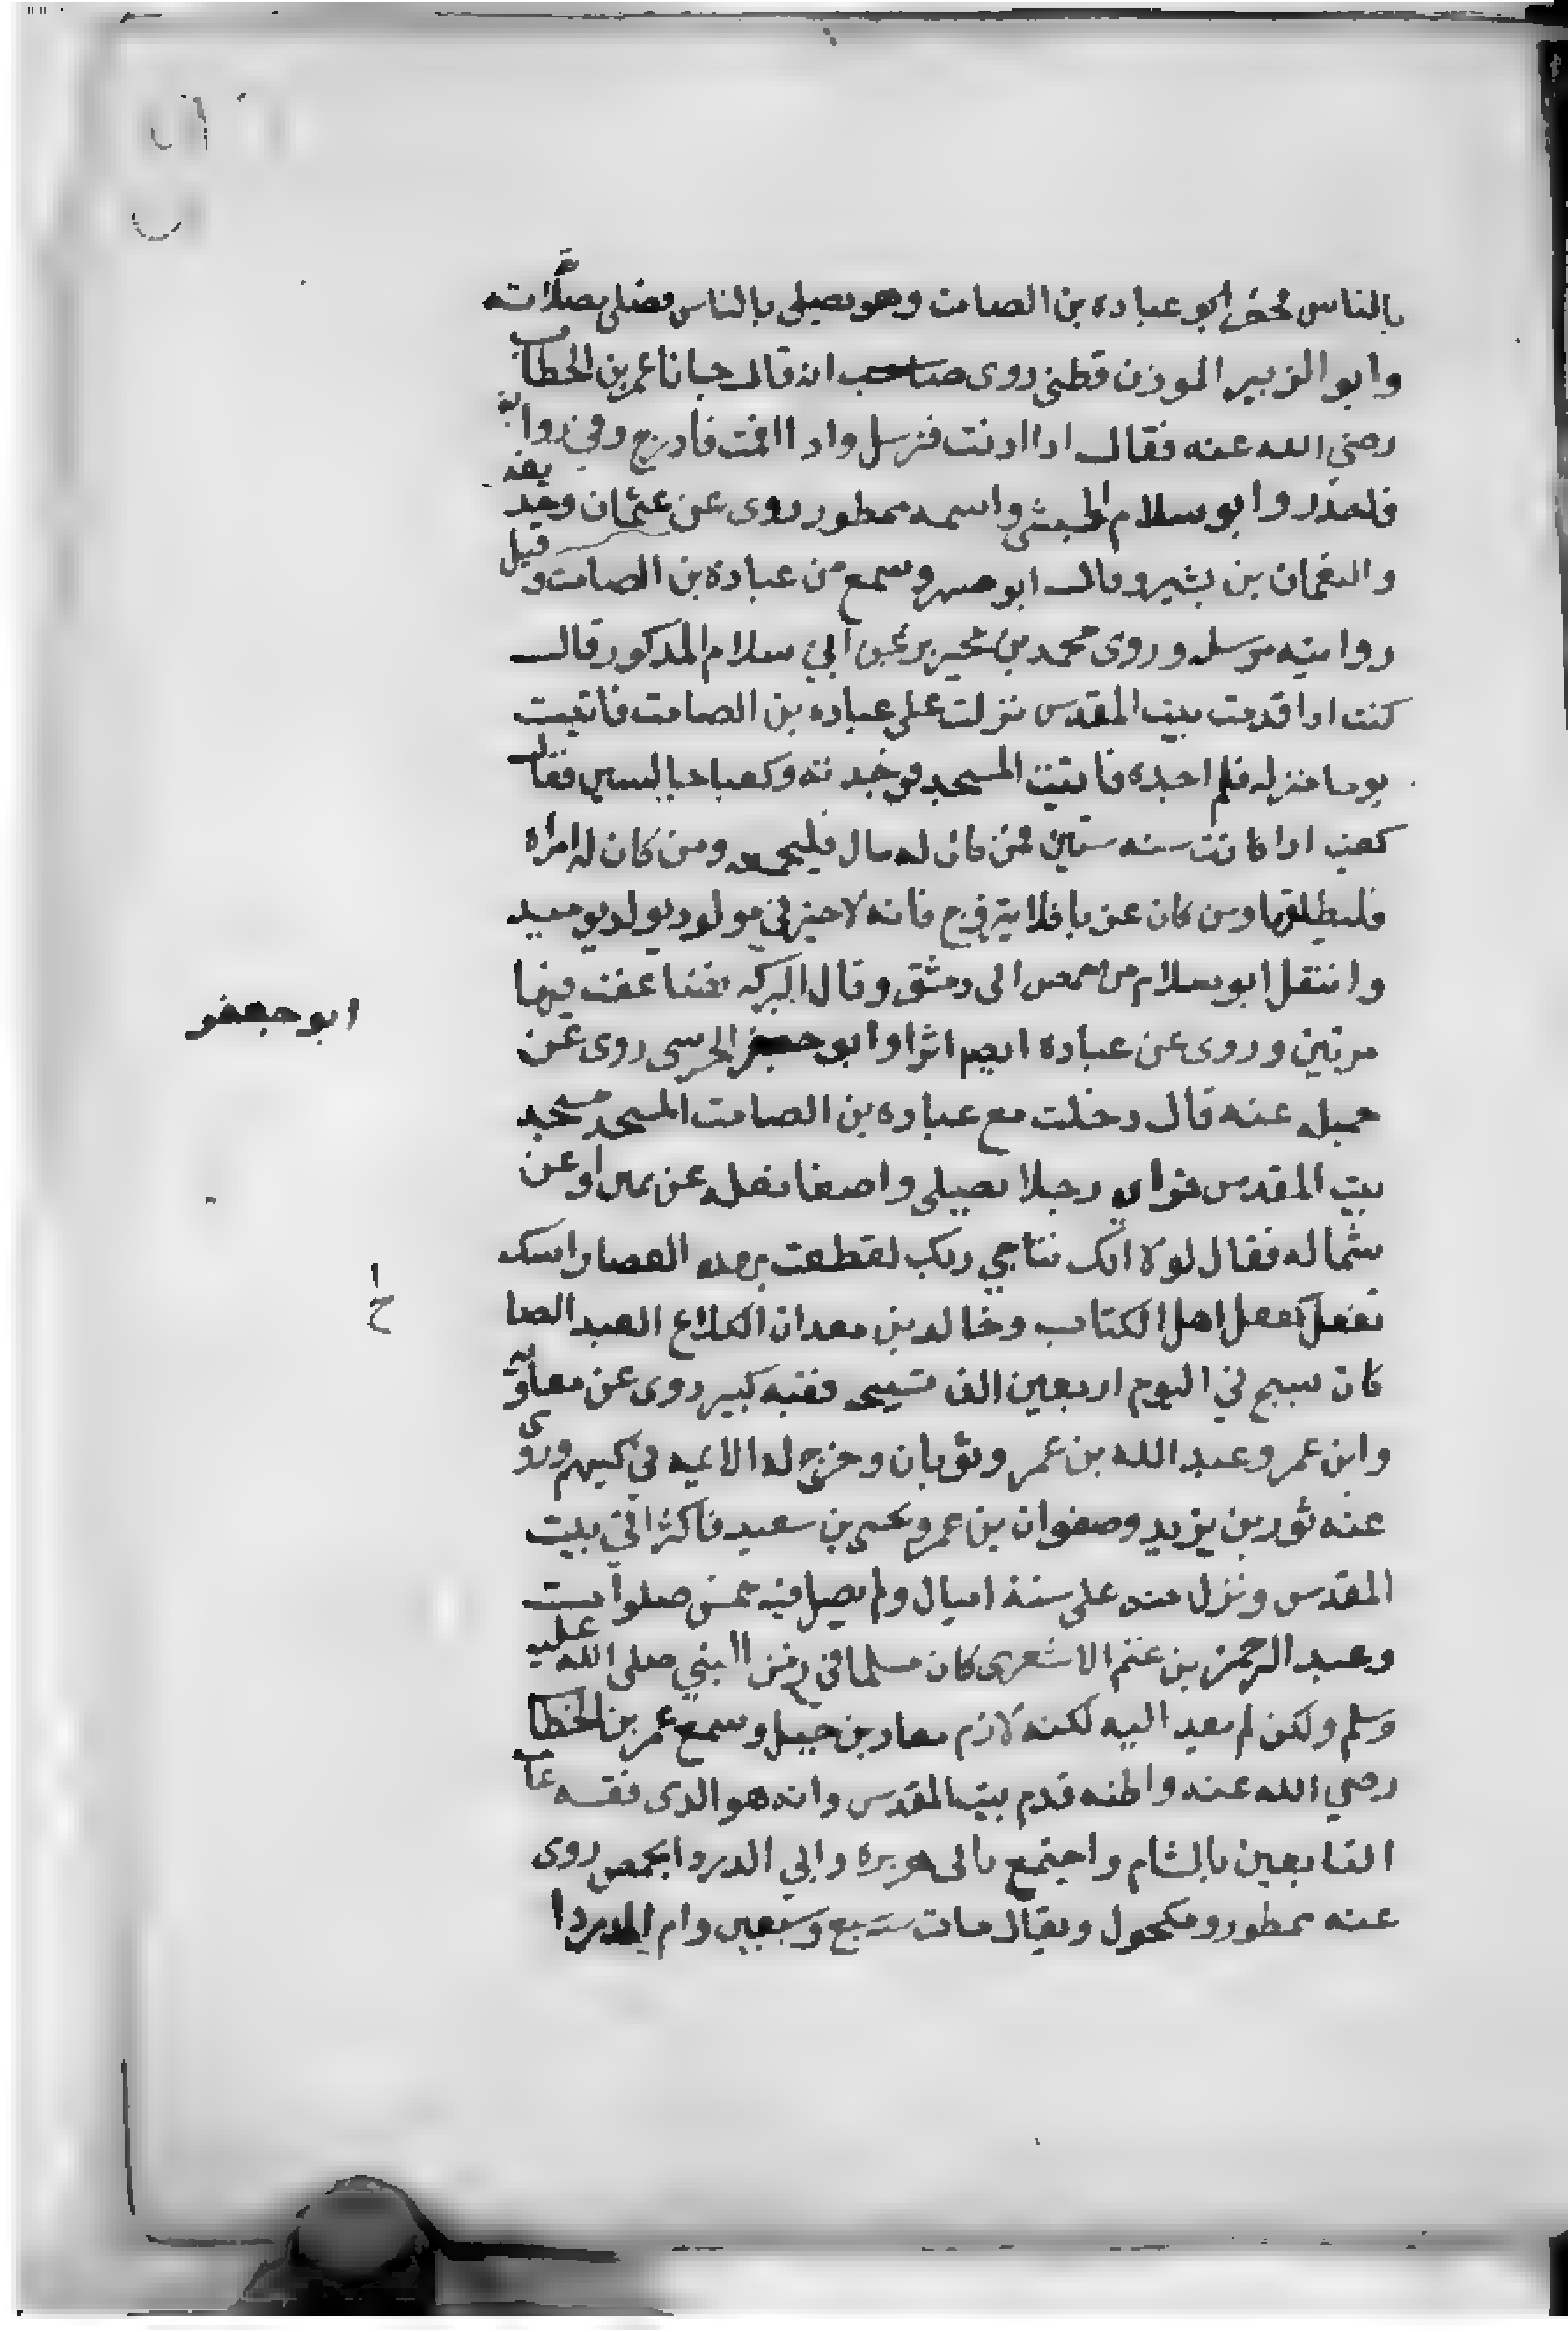 بالناس فحضر ابو عباده بن الصامت وهو يصلى بالناس فصلى بصلاته
وابو الزبير الموذن قطنى روى صاحب انه قال جانا عمر بن الخطاب
رضي الله عنه فقال ادا ادنت فترسل وادا اقمت فادرج وفي رواية
فاحدر وابو سلام الحبشى واسمه ممطور روى عن عثمان وحذيفه
والنعمان بن بشير وقال ابو مسهر وسمع من عبادة بن الصامت وقيل
روايته مرسله وروى محمد بن عن ابي سلام المدكور قال
كنت ادا قدمت بيت المقدس نزلت على عباده بن الصامت فاتيت
يوما منزله فلم اجده فاتيت المسجد فوجدته وكعبا جالسين فقال
كعب ادا كانت سنه ستين فمن كان له مال ومن كان له امراه
فليطلقها ومن كان عزبا فلا يتزوج فانه لا خير في مولود يولد يوميد
وانتقل ابو سلام من حمص الى دمشق وقال البركه فيها
مرتين وروى عن عباده ايضا اثرا وابو جعفر الجرسى روى عن
ابو جعفر
عنه قال دخلت مع عباده بن الصامت المسجد مسجد
بيت المقدس فراى رجلا يصلى واضعا نعله عن يمينه او عن
شماله فقال لولا انك تناجي ربك لقطعت بهده العصا راسك
تفعل كفعل اهل الكتاب وخالد بن معدان الكلاع العبد الصا
لح
كان يسبح في اليوم اربعين الف تسبيحه فقيه كبير روى عن معاويه
وابن عمر وعبد الله بن عمر وثوبان وخرج له الايمه في كتبهم وروى
عنه ثور بن يزيد وصفوان بن عمرو ويحيى بن سعيد فاكثر اتى بيت
المقدس ونزل منه على ستة اميال ولم يصل فيه خمس صلوات
وعبد الرحمن بن غنم الاشعرى كان مسلما في زمن النبي صلى الله عليه
وسلم ولكن لم يفد اليه لكنه لازم معاد بن جبل وسمع عمر بن الخطاب
رضي الله عنه واظنه قدم بيت المقدس وانه هو الدى فقه عامة
التابعين بالشام واجتمع بابى هريره وابي الدردا بحمص روى
عنه ممطور ومكحول ويقال مات سنة سبع وسبعين وام الدردا